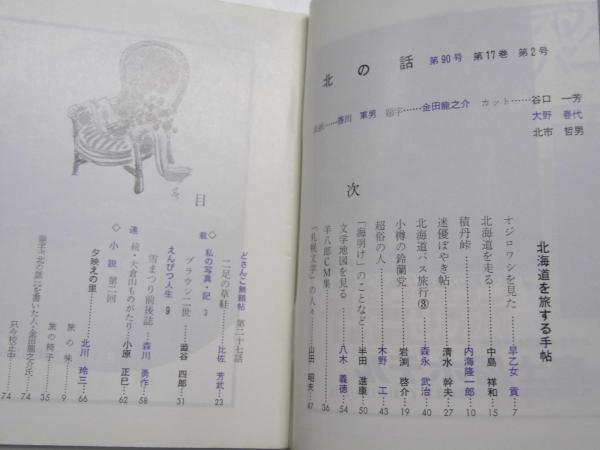 北の話 第90号 第17巻 第2号
香川 軍男 題字……金田龍之介 カット……谷口 一芳
大野 春代
北市 哲男
目次
北海道を旅する手帖
オジロワシを見た……早乙女 貢…7
北海道を走る……中島 祥和…15
積丹峠……内海隆一郎…10
迷優ぼやき帖……清水 幹夫…27
北海道バス旅行③……森永 武治…40
小樽の鈴蘭党……岩渕 啓介…19
超俗の人……木野 工…43
「海明け」のことなど……半田 進康…50
文学地図を見る……八木 義徳…54
羊八郎CM集……36
「札幌文学」の人々……山田 昭夫…47
どさんこ無頼帖 第二十七話
二足の草鞋……比佐 芳武…23
私の写真・記 3
ブラウン二世……澁谷 四郎…31
えんぴつ人生 9
雪まつり前後誌……森川 勇作…58
続・大倉山ものがたり……小原 正巳…62
◇連載
◇小説 第二回
夕映えの里……北川 玲三…66
旅の味……9
旅の椅子……35
題字「北の話」を書いた人・金田龍之介氏…74
只今校正中……74